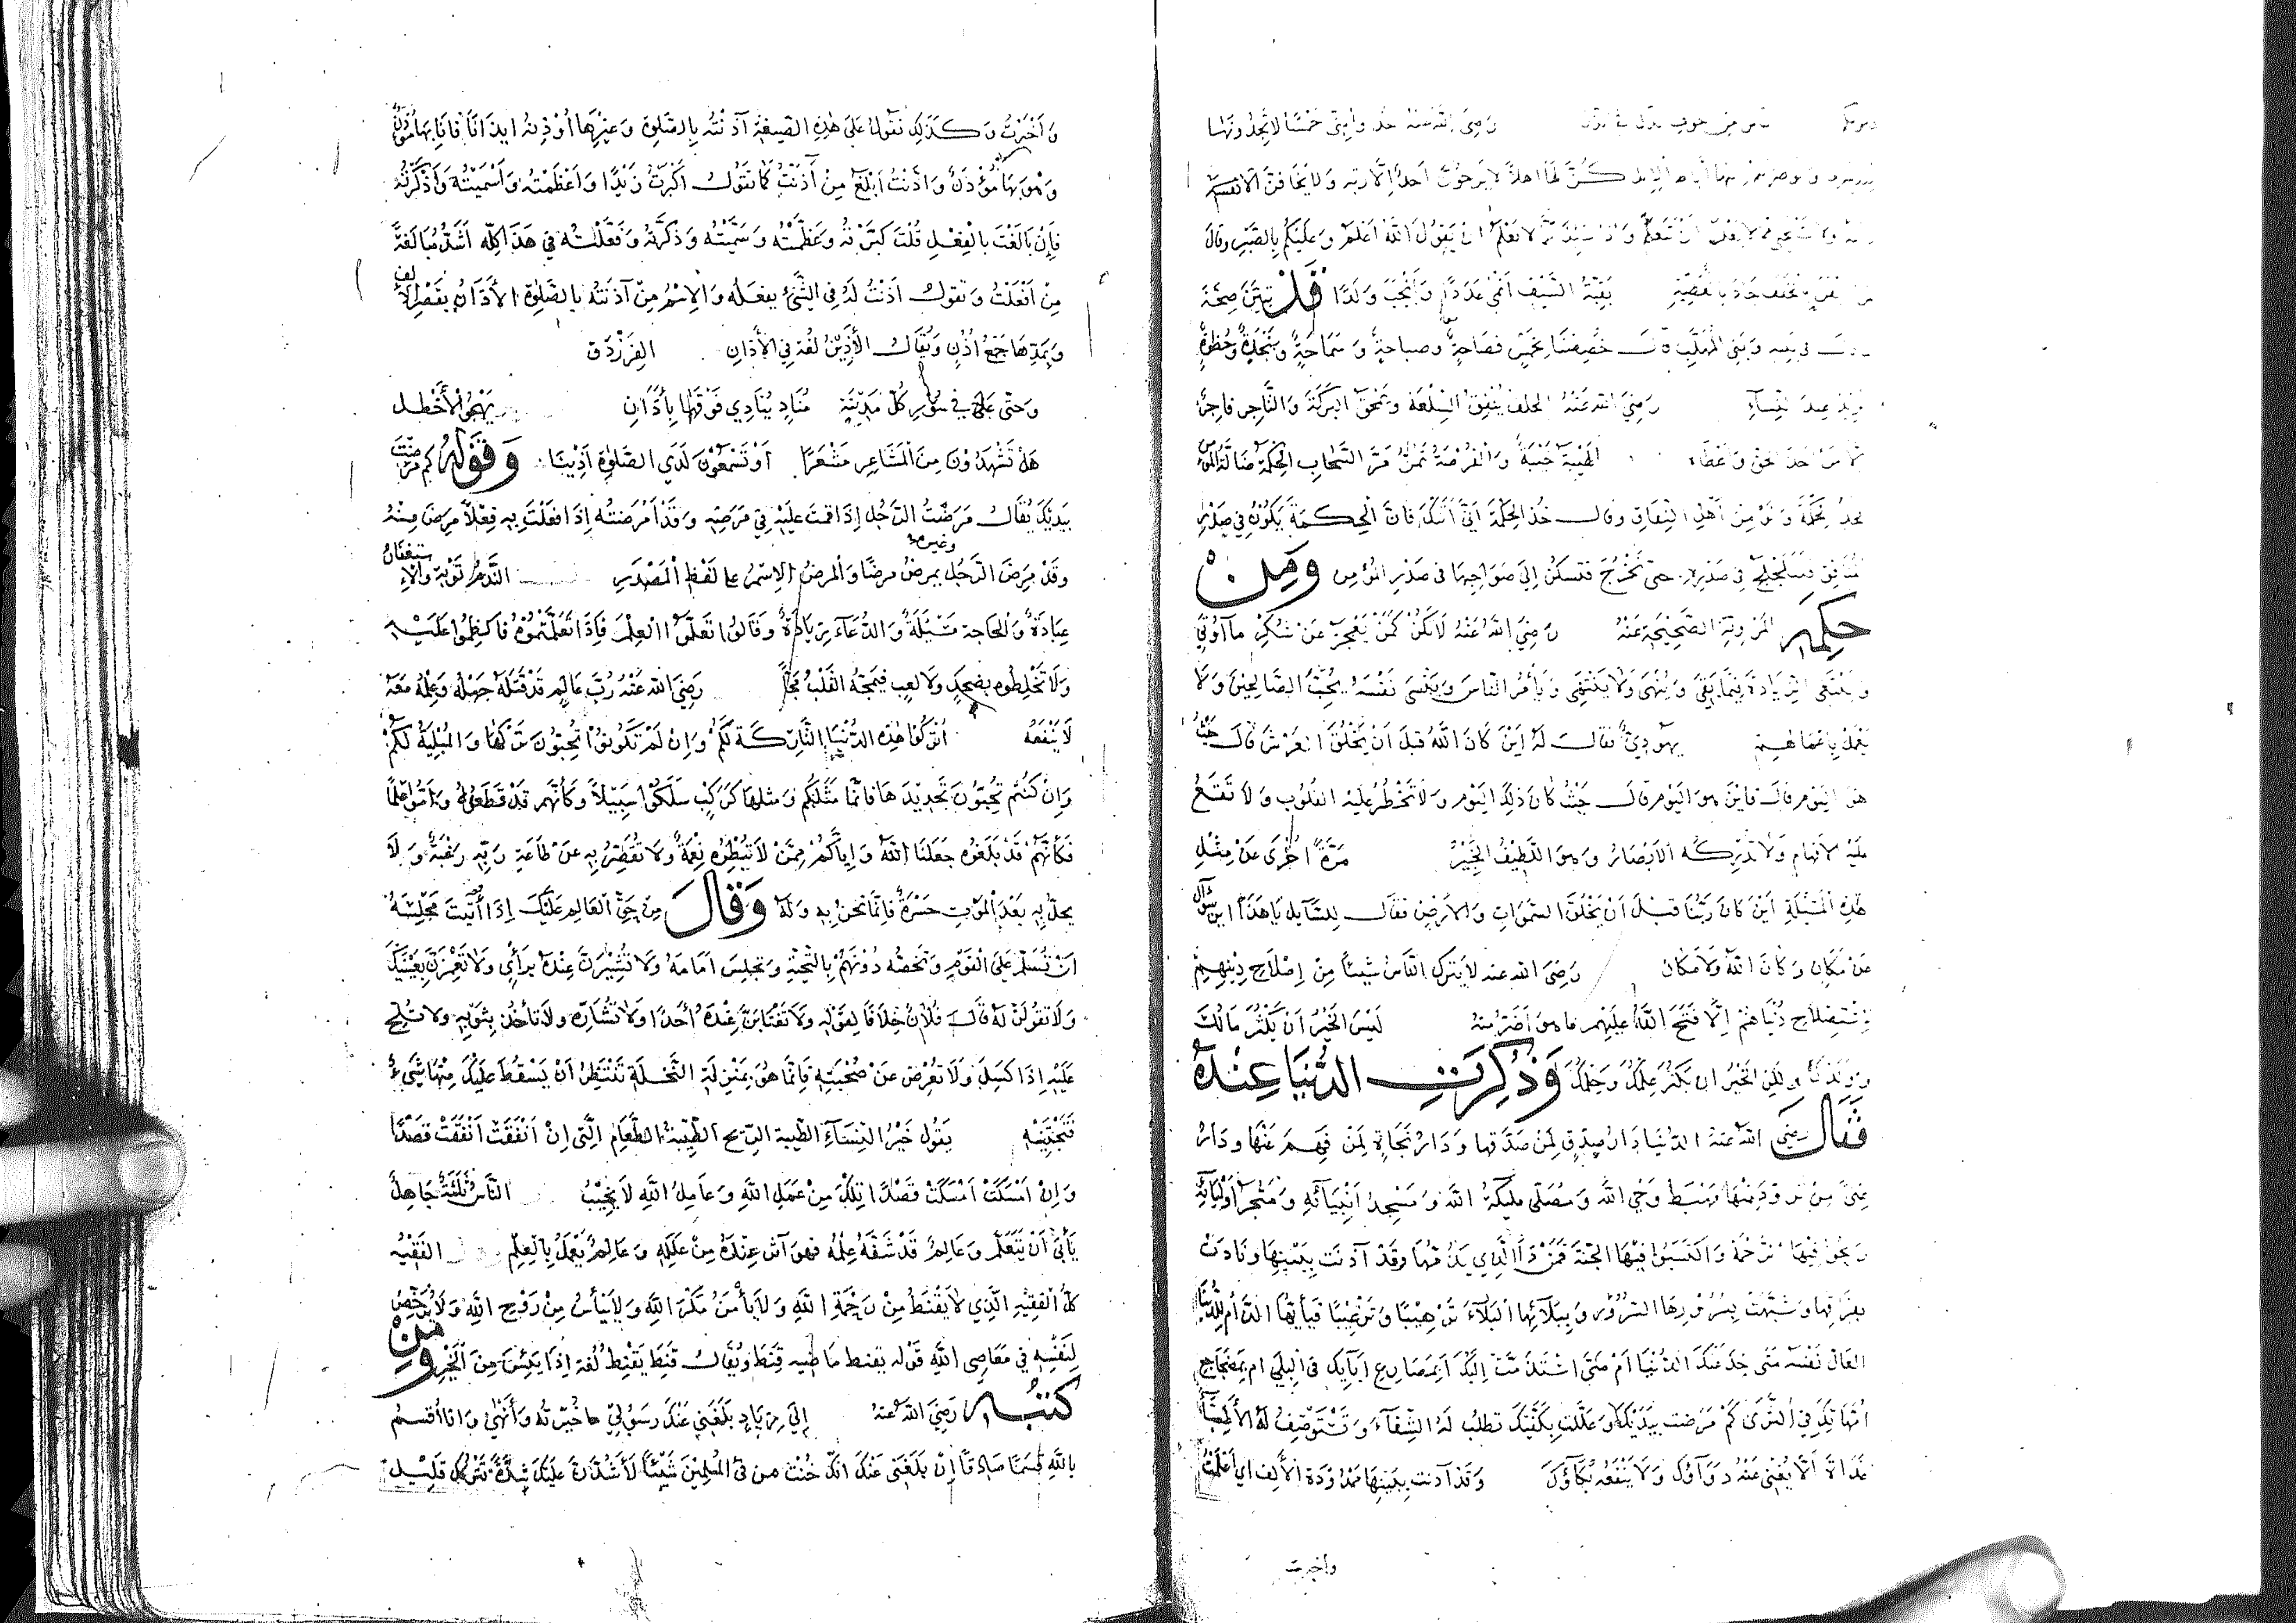 رضي الله عنه خذوا مني خمسا لا تجدونها
كن لها اهلا لا يرجون احد الا ربه ولا يخافن الا نفسه
لا يعلم ان يتعلم لا تعلم ان يقول الله اعلم وعليكم بالصبر وقال
بقية السيف انمى عددا وانجب ولدا
وبني المهلب خصصنا بخمس فصاحة وصباحة وسماحة ونجدة وحظوة
عند النساء رضي الله عنه الحلف ينفق السلعة ويمحق البركة والتاجر فاجر
الا من اخذ الحق واعطاه الهيبة خيبة والفرصة تمر مر السحاب الحكمة ضالة المؤمن
الحكمة ولو من اهل النفاق وقال خذ الحكمة انى اتتك فان الحكمة يكون في صدر
المنافق فتتلجلج في صدره حتى تخرج فتسكن الى صواحبها في صدر المؤمن ومن
حكمه المروية الصحيحة عنه رضي الله عنه لا تكن كمن يعجز عن شكر ما اوتي
ويبتغي الزيادة فيما بقي وينهى ولا ينتهي ويأمر الناس وينسى نفسه يحب الصالحين ولا
يعمل باعمالهم يهودي فقال له اين كان الله قبل ان يخلق العرش قال حيث
هو اليوم قال فاين هو اليوم قال حيث كان ذلك اليوم ولا تخطر عليه القلوب ولا تقع
عليه الافهام ولا تدركه الابصار وهو اللطيف الخبير مرة اخرى عن مثل
هذه المسئلة اين كان ربنا قبل ان يخلق السموات والارض فقال للسايل يا هذا اين سؤال
عن مكان وكان الله ولا مكان رضي الله عنه لا يترك الناس شيئا من اصلاح دينهم
لاستصلاح دنياهم الا فتح الله عليهم ما هو اضر منه ليس الخير ان يكثر مالك
وولدك ولكن الخير ان يكثر علمك وحلمك وذكرت الدنيا عنده
فقال رضي الله عنه الدنيا دار صدق لمن صدقها ودار نجاة لمن فهم عنها ودار
غنى لمن تزود منها مهبط وحي الله ومصلى مليكة الله ومسجد انبيائه ومتجر اوليائه
ربحوا فيها الرحمة واكتسبوا فيها الجنة فمن ذا الذي يذمها وقد آذنت ببينها ونادت
بفراقها وشبهت بسرورها السرور وببلائها البلاء ترهيبا وترغيبا فيا أيها الذام للدنيا
نفسه متى خدعتك الدنيا ام متى استذمت اليك ابمصارع آبايك في البلى ام بمضاجع
امهاتك في الثرى كم مرضت بيديك وعللت بكفيك تطلب له الشفاء وتستوصف له الاطباء
غداة لا يغني عنه دواؤك ولا ينفعه بكاؤك وقد آذنت ببينها ممدودة الالف اي اعلمت
واخبرت
واخبرت وكذلك نقول على هذه الصيغة آذنته بالصلوة وغيرها اوذنه ايذانا فانا بها مؤذن
وهو بها مؤذن واذنت ابلغ من آذنت كما تقول اكبرت زيدا واعظمته واسميته واذكرته
فان بالغت بالفعل قلت كبرته وعظمته وسميته وذكرته وفعلته في هذا كله اشد مبالغة
من افعلت وتقول اذنت له في الشئ يفعله والاسم من آذنته بالصلوة الأذان بقصر الالف
وبمدها جمع اذن ويقال الأذين لغة في الأذان الفرزدق
وحتى علا في سور كل مدينة مناد ينادي فوقها بأذان يهجو الأخطل
هل تشهدون من المشاعر مشعرا او تسمعون لدى الصلوة اذينا وقوله كم مرضت
بيديك يقال مرضت الرجل اذا قمت عليه في مرضه وقد أمرضته اذا فعلت به فعلا مرض منه
وقد مرض الرجل يمرض مرضا والمرض الاسم على لفظ المصدر وغيره الندم توبة والاستغفار
عبادة والحاجة مسئلة والدعاء زيادة وقال تعلموا العلم فاذا تعلمتموه فاكظموا عليه
ولا تخلطوه بضحك ولا لعب فيمجه القلب مجا رضي الله عنه رب عالم قد قتله جهله وعلمه معه
لا ينفعه اتركوا هذه الدنيا التاركة لكم وان لم تكونوا تحبون تركها والمبلية لكم
وان كنتم تحبون تجديدها فانما مثلكم ومثلها كركب سلكوا سبيلا وكأنهم قد قطعوه وامّوا علما
فكأنهم قد بلغوه جعلنا الله واياكم ممن لا تبطره نعمة ولا تقصر به عن طاعة ربه رغبة ولا
يحل به بعد الموت حسرة فانما نحن به وله وقال من حق العالم عليك اذا أتيت مجلسه
ان تسلم على القوم وتخصه دونهم بالتحية وتجلس امامه ولا تشيرن عنده برأي ولا تغمزن بعينيك
ولا تقولن له قال فلان خلافا لقوله ولا تغتابن عنده أحدا ولا تشاره ولا تأخذ بثوبه ولا تلح
عليه اذا كسل ولا تعرض عن صحبته فانما هو بمنزلة النخلة تنتظر ان يسقط عليك منها شيء
فتجتنيه يقول خير النساء الطيبة الريح الطيبة الطعام التي ان انفقت انفقت قصدا
وان امسكت امسكت قصدا تلك من عمل الله وعامل الله لا يخيب الناس ثلثة جاهل
يأبى ان يتعلم وعالم قد شفه علمه وعالم يعمل بالعلم الفقيه
كل الفقيه الذي لا يقنط من رحمة الله ولا يأمن مكر الله ولا ييأس من روح الله ولا يرخص
لنفسه في معاصي الله قوله يقنط ماضيه قنط ويقال قنط يقنط لغة اذا يئس من الخير ومن
كتبه رضي الله عنه الى زياد بلغني عنك رسولي ما خبرته وأنهى وانا أقسم
بالله قسما صادقا ان بلغني عنك انك خنت من فئ المسلمين شيئا لأشدن عليك شدة تتركك قليل